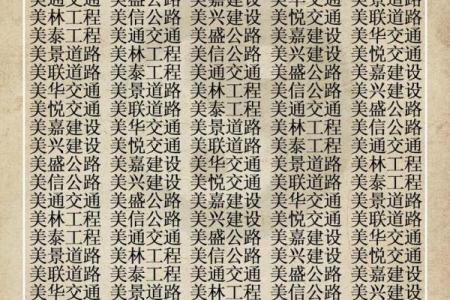 美通交通 美盛公路 美嘉建设 美华交通 美景道路
美林工程 美信公路 美兴建设 美悦交通 美联道路
美泰工程 美通交通 美盛公路 美嘉建设 美华交通
美景道路 美林工程 美信公路 美兴建设 美悦交通
美联道路 美泰工程 美通交通 美盛公路 美嘉建设
美华交通 美景道路 美林工程 美信公路 美兴建设
美悦交通 美联道路 美泰工程 美通交通 美盛公路
美嘉建设 美华交通 美景道路 美林工程 美信公路
美兴建设 美悦交通 美联道路 美泰工程 美通交通
美盛公路 美嘉建设 美华交通 美景道路 美林工程
美信公路 美兴建设 美悦交通 美联道路 美泰工程
美通交通 美盛公路 美嘉建设 美华交通 美景道路
美林工程 美信公路 美兴建设 美悦交通 美联道路
美泰工程 美通交通 美盛公路 美嘉建设 美华交通
美景道路 美林工程 美信公路 美兴建设 美悦交通
美联道路 美泰工程 美通交通 美盛公路 美嘉建设
美华交通 美景道路 美林工程 美信公路 美兴建设